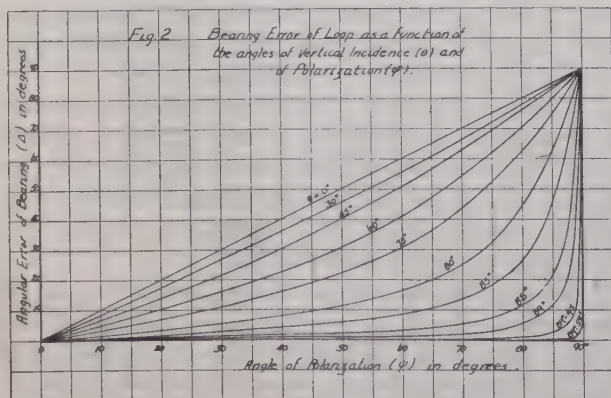 Fig. 2 Bearing Error of Loop as a function of
the angles of Vertical Incidence (θ) and
of Polarization (ψ).
Angular Error of Bearing (Δ) in degrees
90
80
70
60
50
40
30
20
10
θ = 0°
30°
45°
60°
70°
80°
85°
88°
89°
0 10 20 30 40 50 60 70 80 90°
Angle of Polarization (ψ) in degrees.